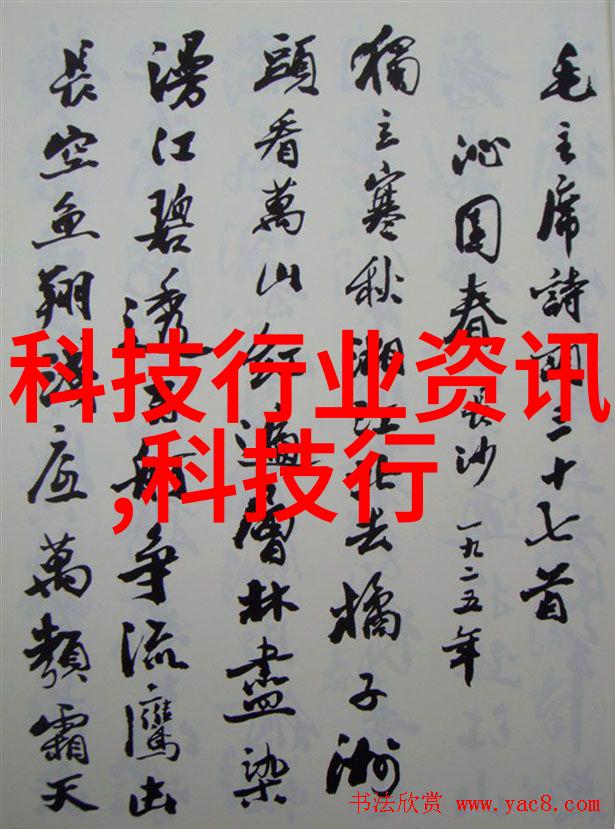 毛主席詩詞三十七首
沁園春 長沙 一九二五年
獨立寒秋湘江北去橘子洲
頭看萬山紅遍層林盡染
漫江碧透百舸争流鷹击
長空魚翔淺底萬類霜天
科技行业资讯
,科技行
书法欣赏 www.yac8.com